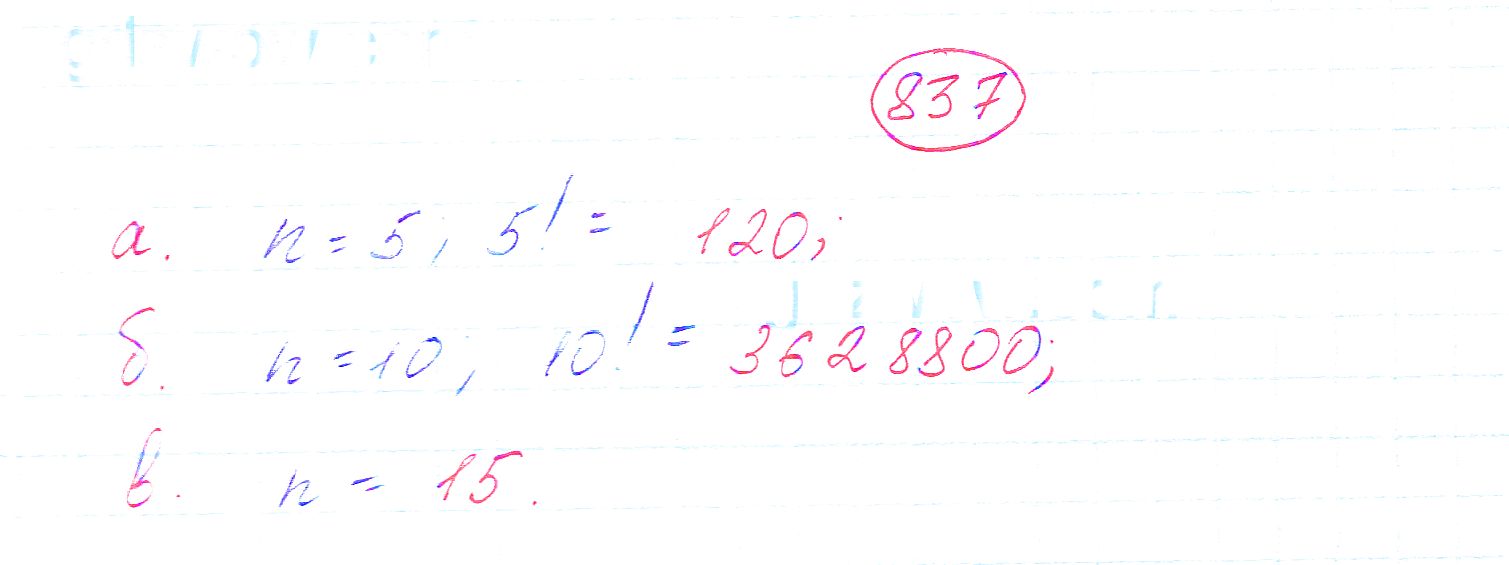 837
а. n = 5; 5! = 120;
б. n = 10; 10! = 3628800;
в. n = 15.